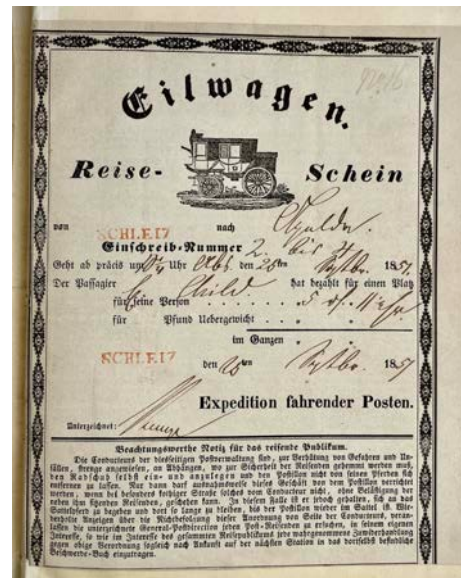 Eilwagen.
Reise- Schein
von SCHLEIZ nach
Einschreib-Nummer 2.
Geht ab präcis um Uhr Abs. den 25ten Septbr. 1851
Der Passagier hat bezahlt für einen Platz
für seine Person . . . . . 5
für Pfund Uebergewicht . .
im Ganzen
SCHLEIZ den 25ten Septbr. 1851
Expedition fahrender Posten.
Unterzeichnet:
Beachtungswerthe Notiz für das reisende Publikum.
Die Conducteurs der diesseitigen Postverwaltung sind, zur Verhütung von Gefahren und Un-
fällen, strenge angewiesen, an Abhängen, wo zur Sicherheit der Reisenden gehemmt werden muß,
den Radschuh selbst ein- und anzulegen und den Postillon nicht von seinen Pferden sich
entfernen zu lassen. Nur dann darf ausnahmsweise dieses Geschäft von dem Postillon verrichtet
werden, wenn bei besonders kothiger Straße solches vom Conducteur nicht, ohne Belästigung der
neben ihm sitzenden Reisenden, geschehen kann. In diesem Falle ist er jedoch gehalten, sich an das
Sattelpferd zu begeben und dort so lange zu bleiben, bis der Postillon wieder im Sattel ist. Wie-
derholte Anzeigen über die Nichtbefolgung dieser Anordnung von Seite der Conducteurs, veran-
lassen die unterzeichnete General-Postdirection jeden Post-Reisenden zu ersuchen, in seinem eigenen
Interesse, so wie im Interesse des gesammten Reisepublikums jede wahrgenommene Zuwiderhandlung
gegen obige Verordnung sogleich nach Ankunft auf der nächsten Station in das dortselbst befindliche
Beschwerde-Buch einzutragen.